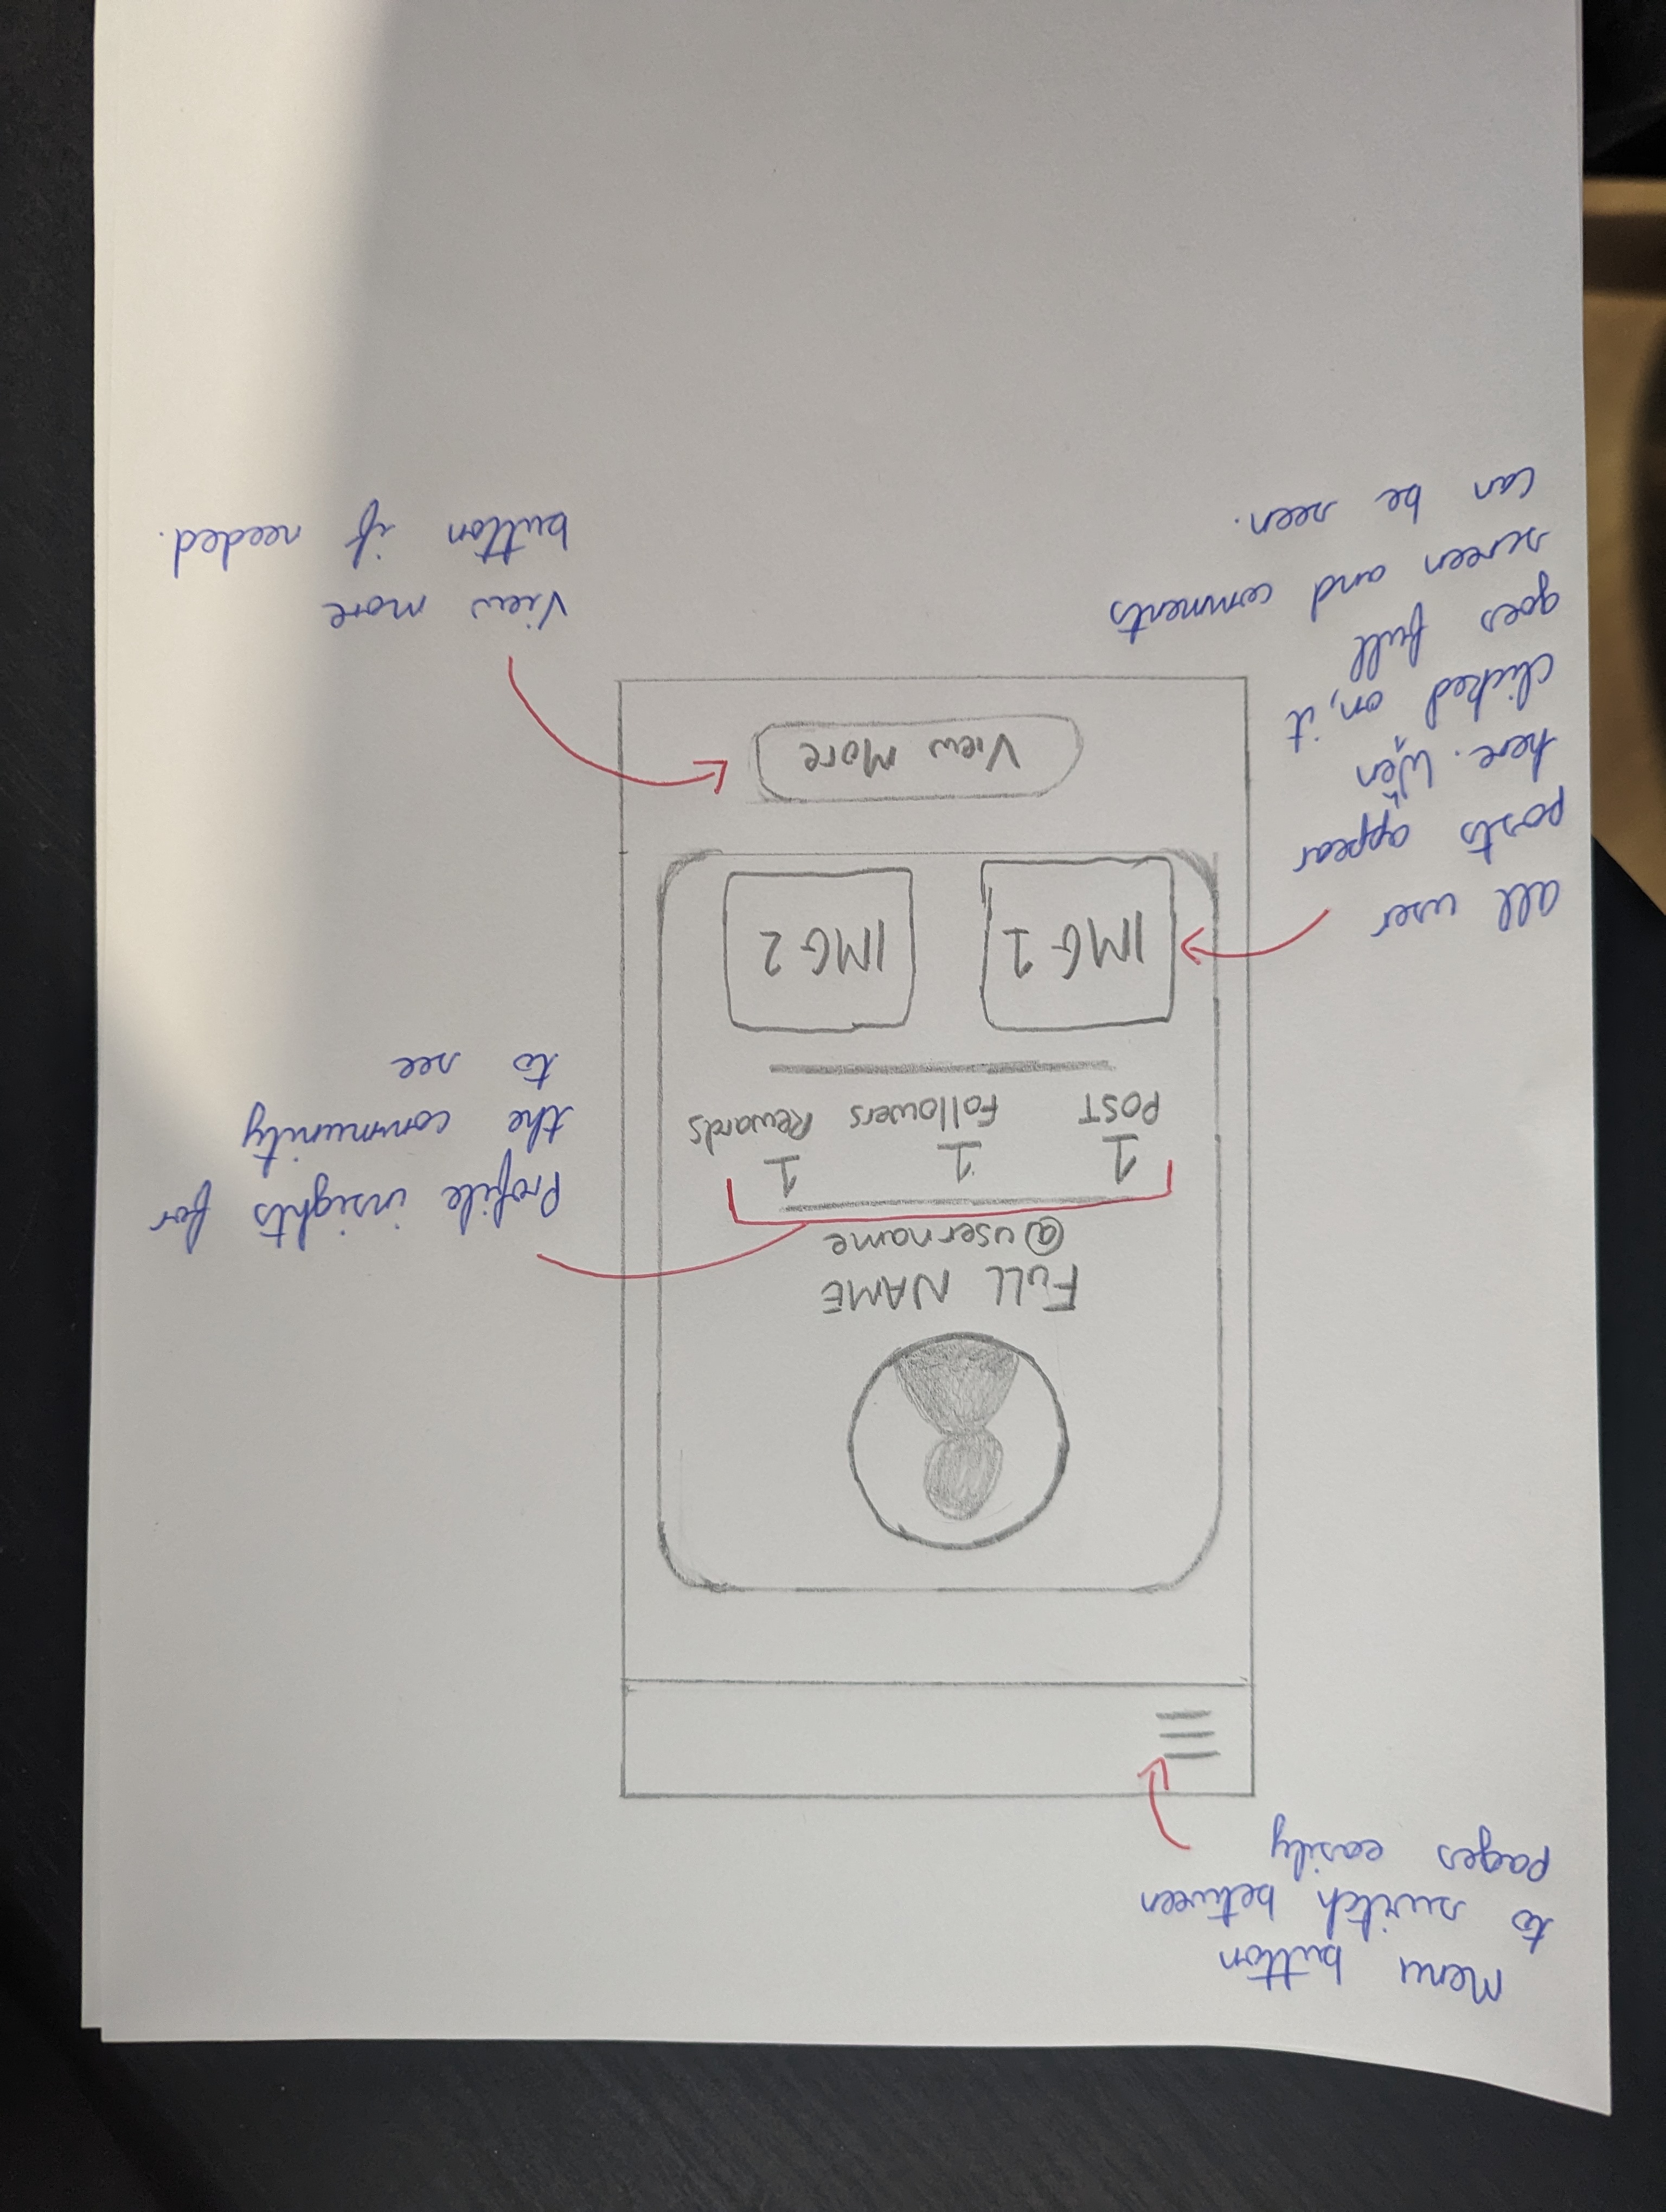 Menu button
to switch between
pages easily
FULL NAME
@username
1 1 1
POST Followers Rewards
Profile insights for
the community
to see
IMG 1 IMG 2
all user
posts appear
here. When
clicked on, it
goes full
screen and comments
can be seen.
View More
View more
button if needed.